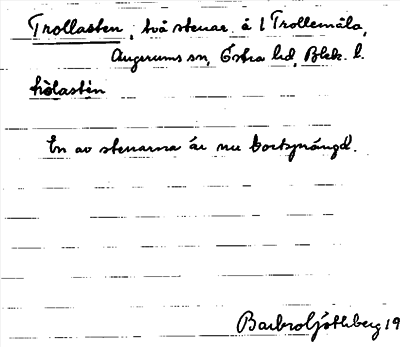 Trollasten, två stenar å 1 Trollemåla,
Augerums sn, Östra hd, Blek. l.
tròlastèn
En av stenarna är nu bortsprängd.
Barbro Ljóthberg 19